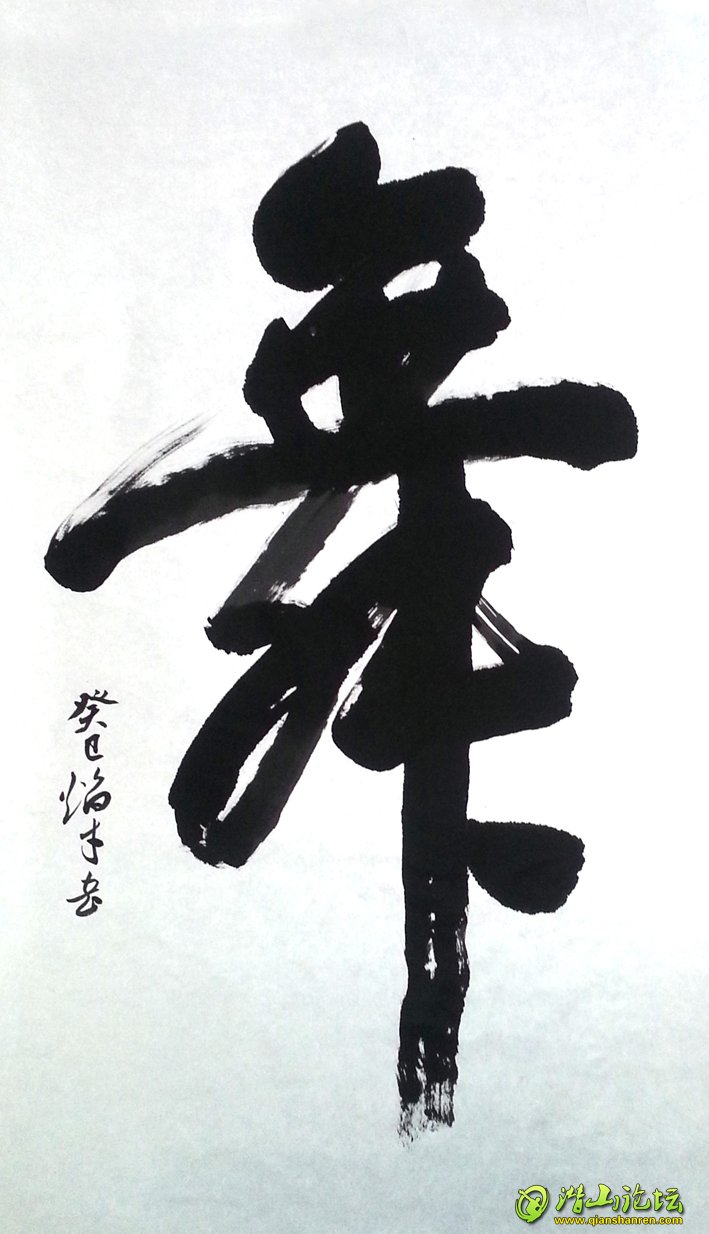 舞
癸巳焰丰书
潜山论坛
www.qianshanren.com